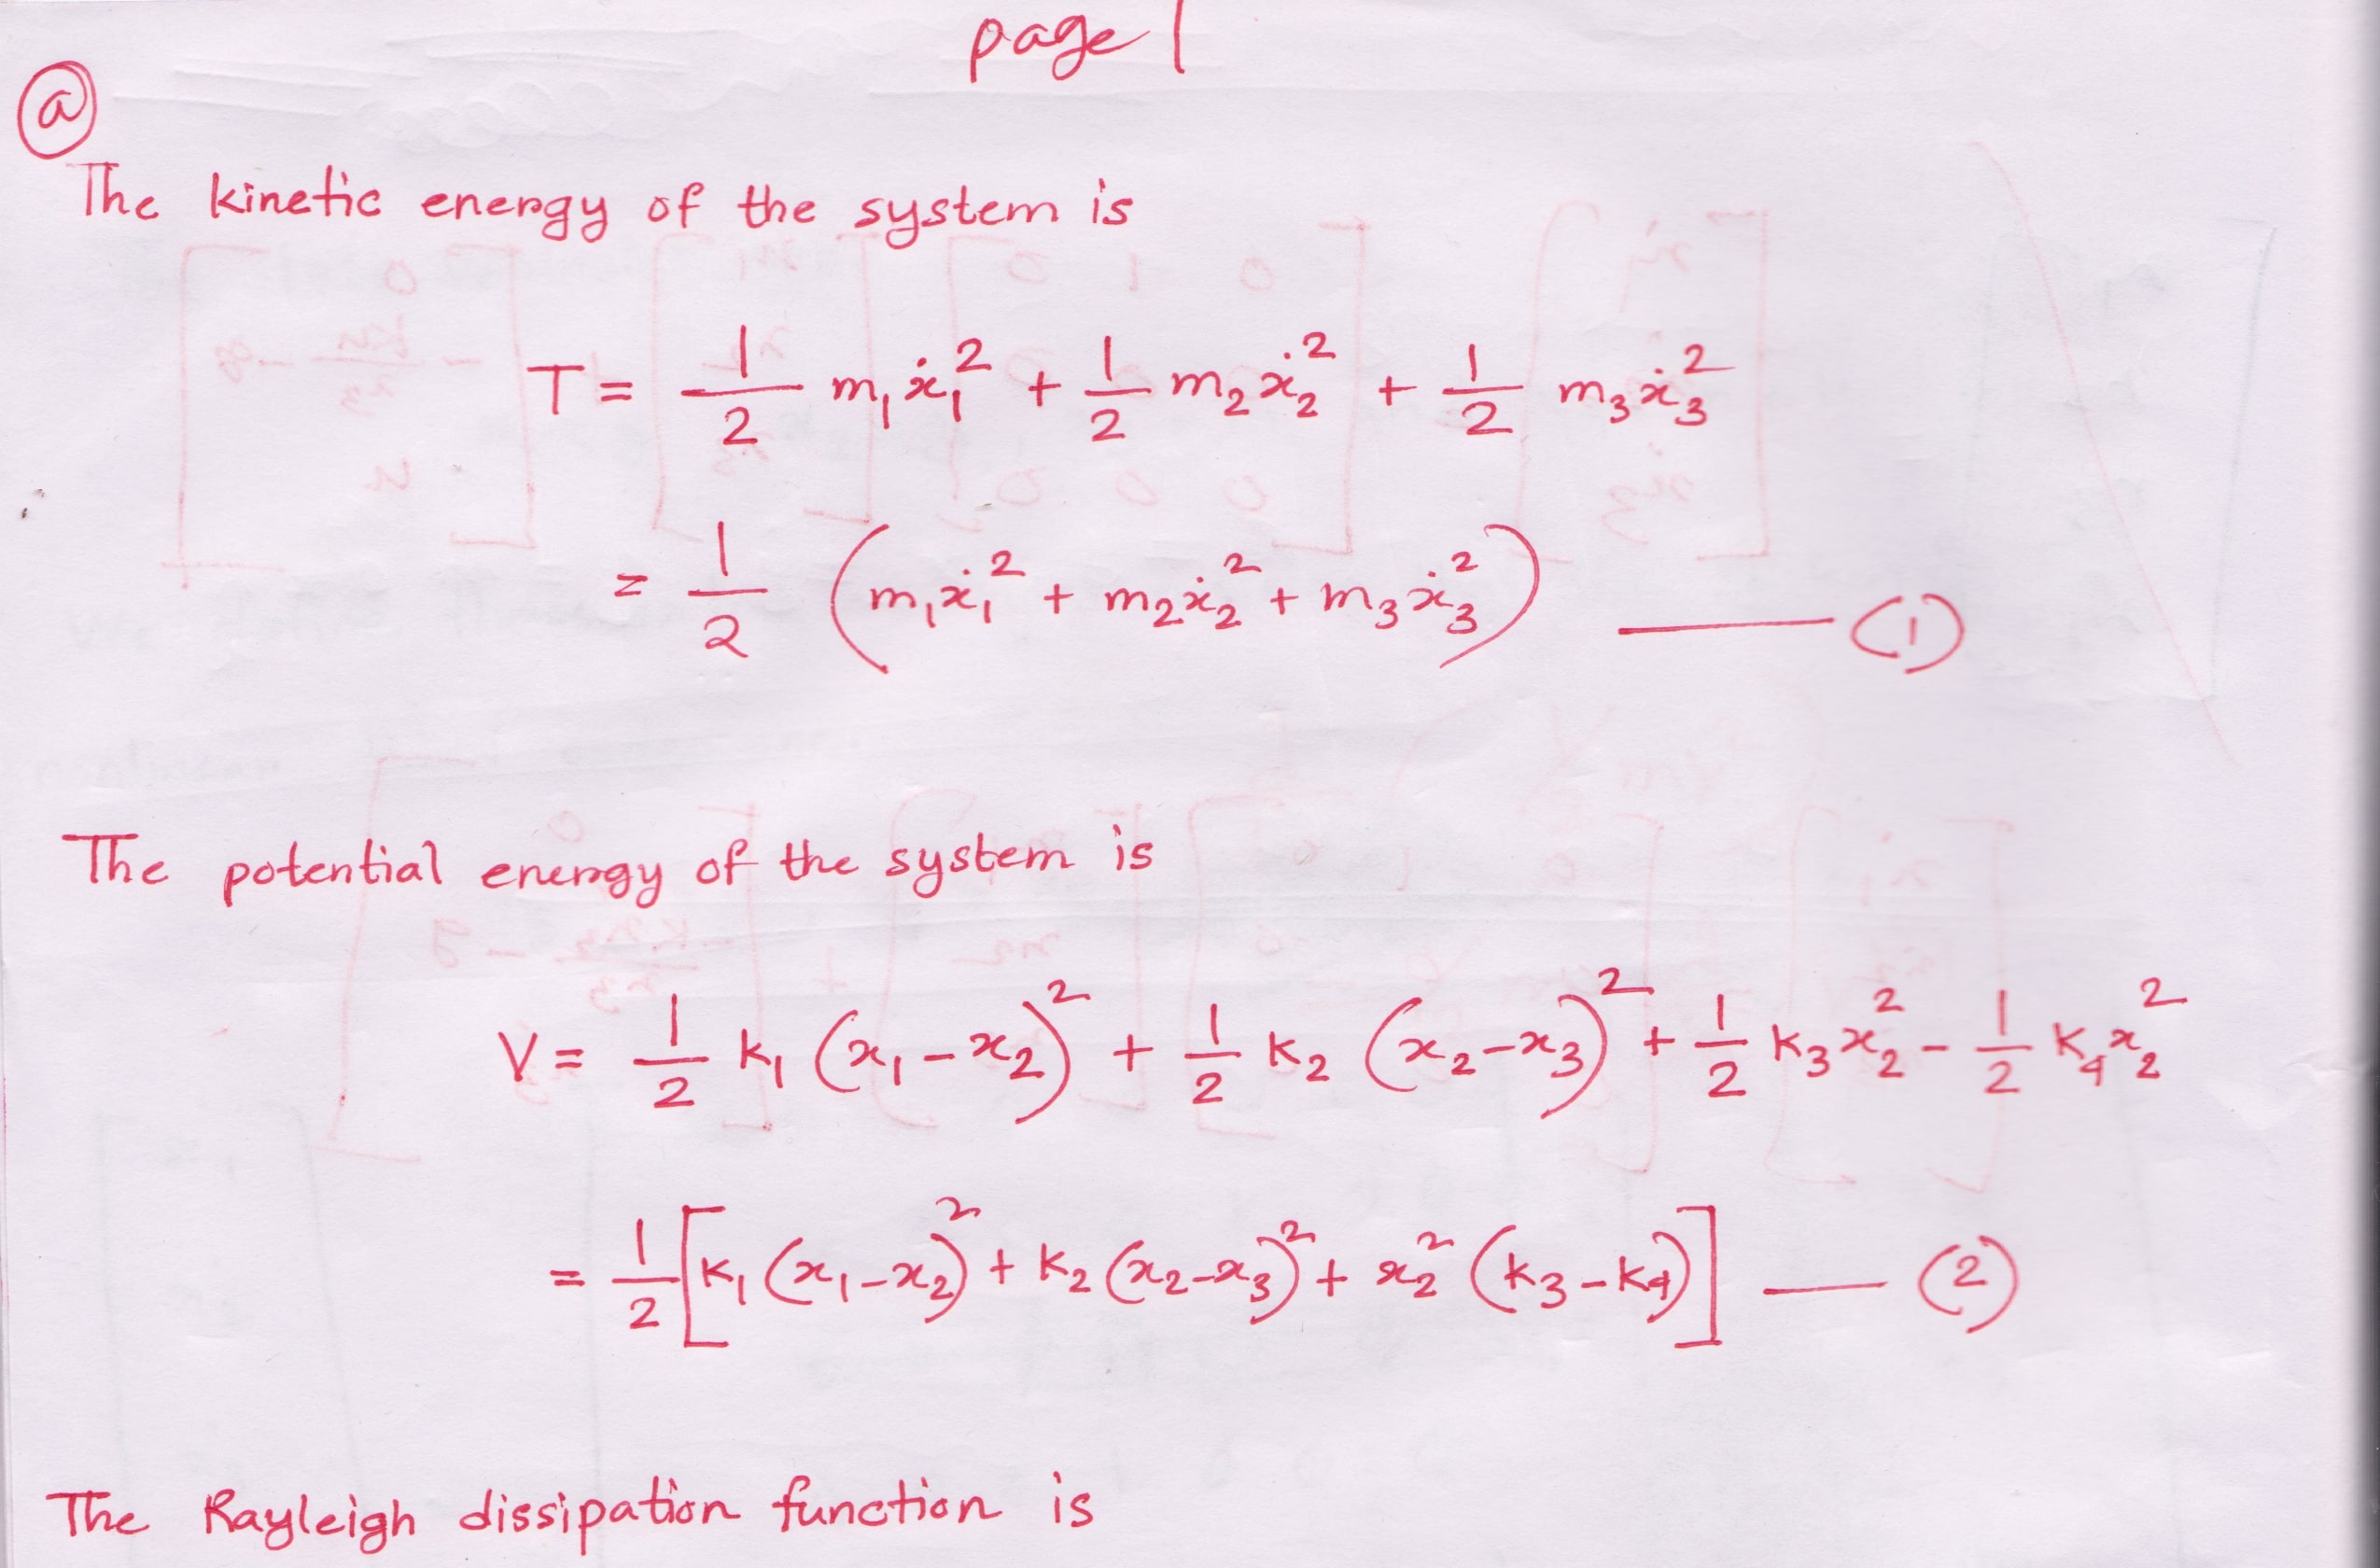 page 1
(a)
The kinetic energy of the system is
T = 1/2 m₁ẋ₁² + 1/2 m₂ẋ₂² + 1/2 m₃ẋ₃²
= 1/2 (m₁ẋ₁² + m₂ẋ₂² + m₃ẋ₃²) —— (1)
The potential energy of the system is
V = 1/2 k₁ (x₁-x₂)² + 1/2 k₂ (x₂-x₃)² + 1/2 k₃x₂² - 1/2 k₄x₂²
= 1/2 [k₁ (x₁-x₂)² + k₂ (x₂-x₃)² + x₂² (k₃-k₄)] — (2)
The Rayleigh dissipation function is